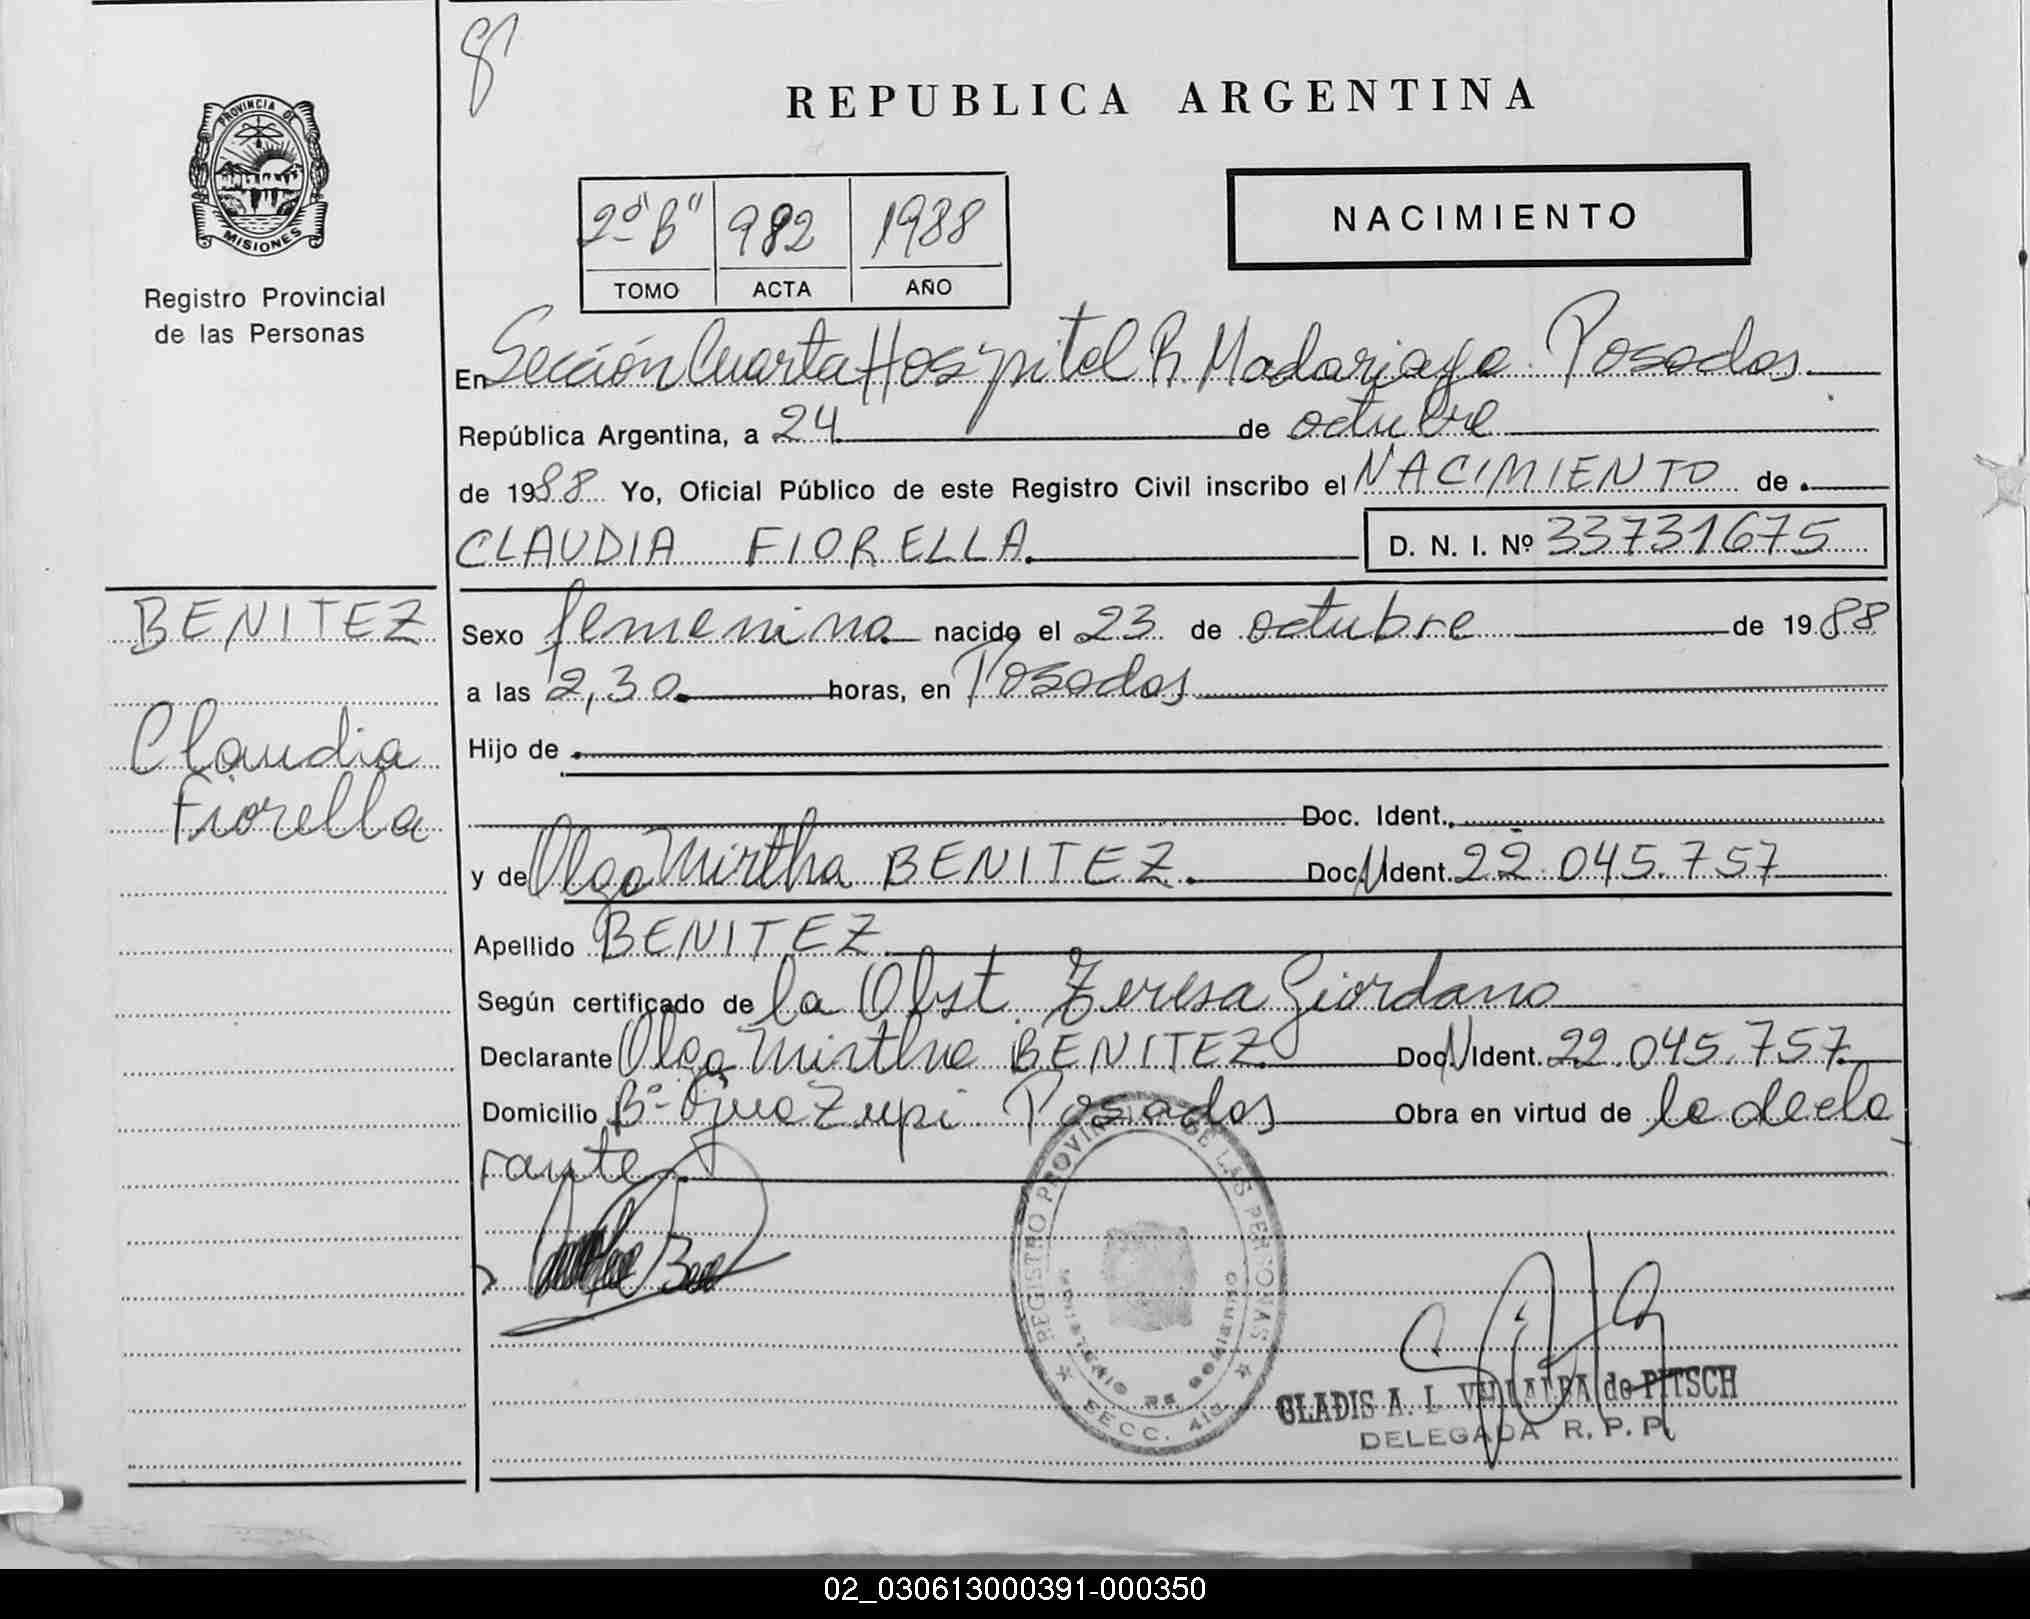 8
REPUBLICA ARGENTINA
PROVINCIA DE
MISIONES
Registro Provincial
de las Personas
2º "B" 982 1988
TOMO ACTA AÑO
NACIMIENTO
En Sección Cuarta Hospital R. Madariaga. Posadas.
República Argentina, a 24 de octubre
de 1988 Yo, Oficial Público de este Registro Civil inscribo el NACIMIENTO de
CLAUDIA FIORELLA. D. N. I. Nº 33731675
BENITEZ
Claudia
Fiorella
Sexo femenino nacido el 23 de octubre de 1988
a las 2,30 horas, en Posadas
Hijo de
Doc. Ident.
y de Olga Mirtha BENITEZ. Doc. N Ident. 22.045.757
Apellido BENITEZ
Según certificado de la Obst. Teresa Giordano
Declarante Olga Mirtha BENITEZ Doc. N Ident. 22.045.757
Domicilio Bº Posadas Obra en virtud de la decla
rante.
REGISTRO PROVINCIAL DE LAS PERSONAS
MINISTERIO DE GOBIERNO
SECC. 4ta
GLADIS A. I. VILLALBA de PITSCH
DELEGADA R. P. P.
02_030613000391-000350